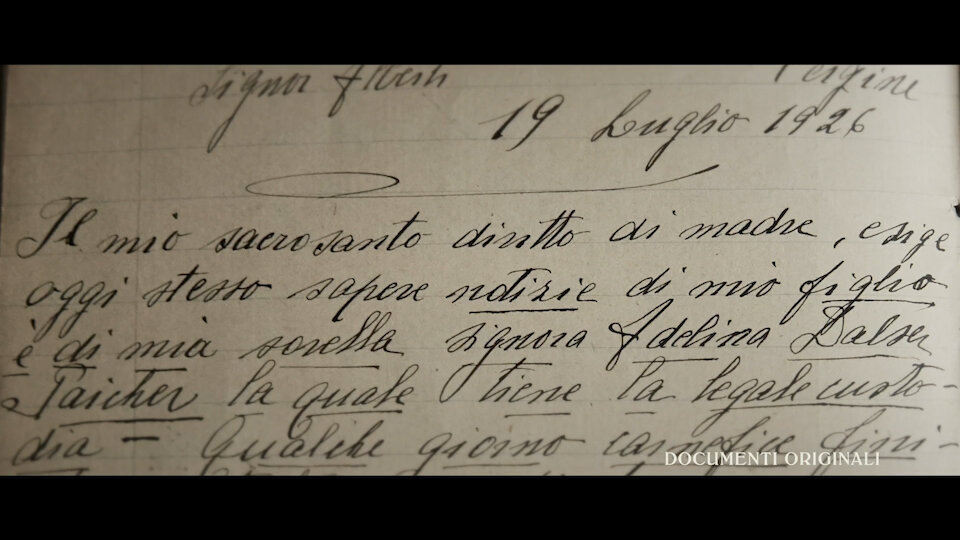 Signor Alberti Pergine
19 Luglio 1926
Il mio sacrosanto diritto di madre, esige
oggi stesso sapere notizie di mio figlio
è di mia sorella signora Adelina Dalser
Paicher la quale tiene la legale custo-
dia - Qualche giorno carnefice fini-
DOCUMENTI ORIGINALI